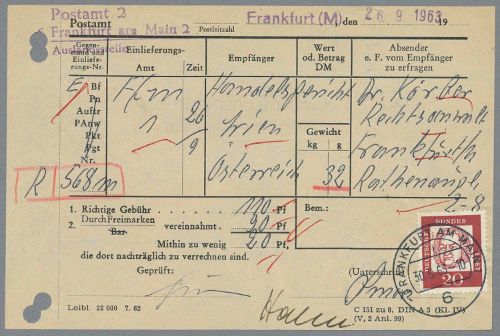 Postamt 2
Frankfurt am Main 2
Auslandsstelle
Postamt
Postleitzahl
Frankfurt (M) den 26. 9. 1963 19
Gegenstand und Einlieferungs-Nr.
Einlieferungs-
Amt Zeit
Empfänger
Wert od. Betrag DM
Absender e. F. vom Empfänger zu erfragen
E Bf
Pn
Auftr
PAnw
Pkt
Pgt
Nr.
R 568 m
Ffm
1
26
/9
Handelsgericht
Wien
Österreich
Gewicht
kg g
33
Dr. Körber
Rechtsanwalt
Frankfurt
1. Richtige Gebühr 110 Pf
2. Durch Freimarken
Bar
vereinnahmt 90 Pf
Mithin zu wenig 20 Pf,
die dort nachträglich zu verrechnen sind.
Bem.:
Geprüft:
(Unterschrift)
FRANKFURT AM MAIN
6
DEUTSCHE BUNDESPOST
20
Loibl 22 000 7. 62
C 151 zu 8, DIN A 3 (Kl. IV)
(V, 2 Anl. 99)